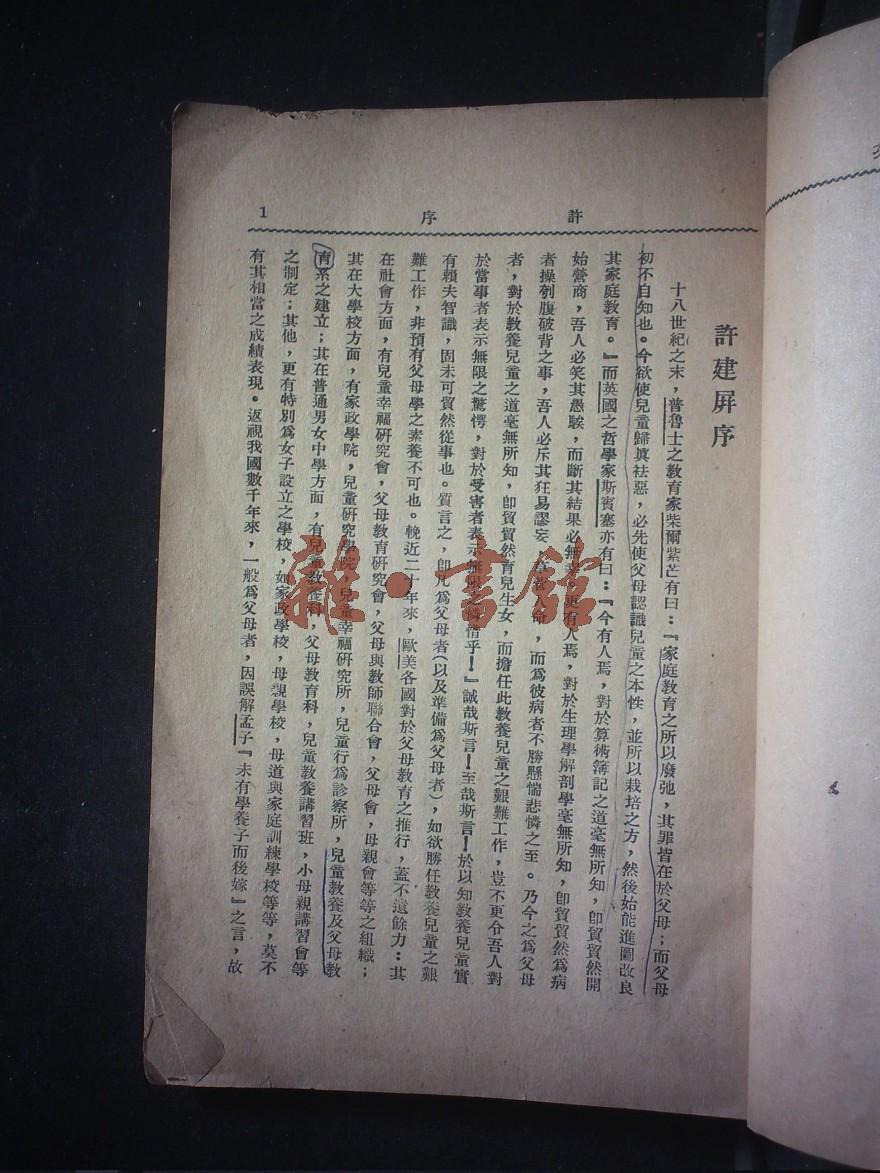 許序
1
許建屏序
十八世紀之末，普魯士之教育家柴爾紫芒有曰：『家庭教育之所以廢弛，其罪皆在於父母；而父母
初不自知也。今欲使兒童歸眞袪惡，必先使父母認識兒童之本性，並所以栽培之方，然後始能進圖改良
其家庭教育。』而英國之哲學家斯賓塞亦有曰：『今有人焉，對於算術簿記之道毫無所知，卽貿貿然開
始營商，吾人必笑其愚騃，而斷其結果必無幸。更有人焉，對於生理學解剖學毫無所知，卽貿貿然爲病
者操刳腹破背之事，吾人必斥其狂易謬妄，草菅人命，而爲彼病者不勝懸惴悲憐之至。乃今之爲父母
者，對於教養兒童之道毫無所知，卽貿貿然育兒生女，而擔任此教養兒童之艱難工作，豈不更令吾人對
於當事者表示無限之驚愕，對於受害者表示無限之憐惜乎！』誠哉斯言！至哉斯言！於以知教養兒童實
有賴夫智識，固未可貿然從事也。質言之，卽凡爲父母者（以及準備爲父母者），如欲勝任教養兒童之艱
難工作，非預有父母學之素養不可也。輓近二十年來，歐美各國對於父母教育之推行，蓋不遺餘力：其
在社會方面，有兒童幸福研究會，父母教育研究會，父母與教師聯合會，父母會，母親會等等之組織；
其在大學校方面，有家政學院，兒童研究學院，兒童幸福研究所，兒童行爲診察所，兒童教養及父母教
育系之建立；其在普通男女中學方面，有兒童教養科，父母教育科，兒童教養講習班，小母親講習會等
之制定；其他，更有特別爲女子設立之學校，如家政學校，母親學校，母道與家庭訓練學校等等，莫不
有其相當之成績表現。返視我國數千年來，一般爲父母者，因誤解孟子『未有學養子而後嫁』之言，故
雜·書館